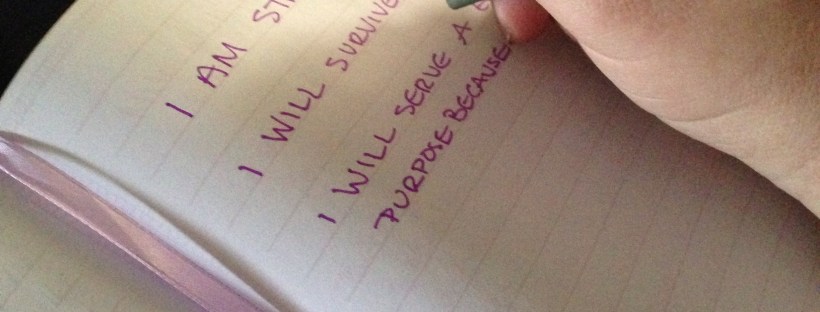 I AM
I WILL SURVIVE
I WILL SERVE A
PURPOSE BECAUSE